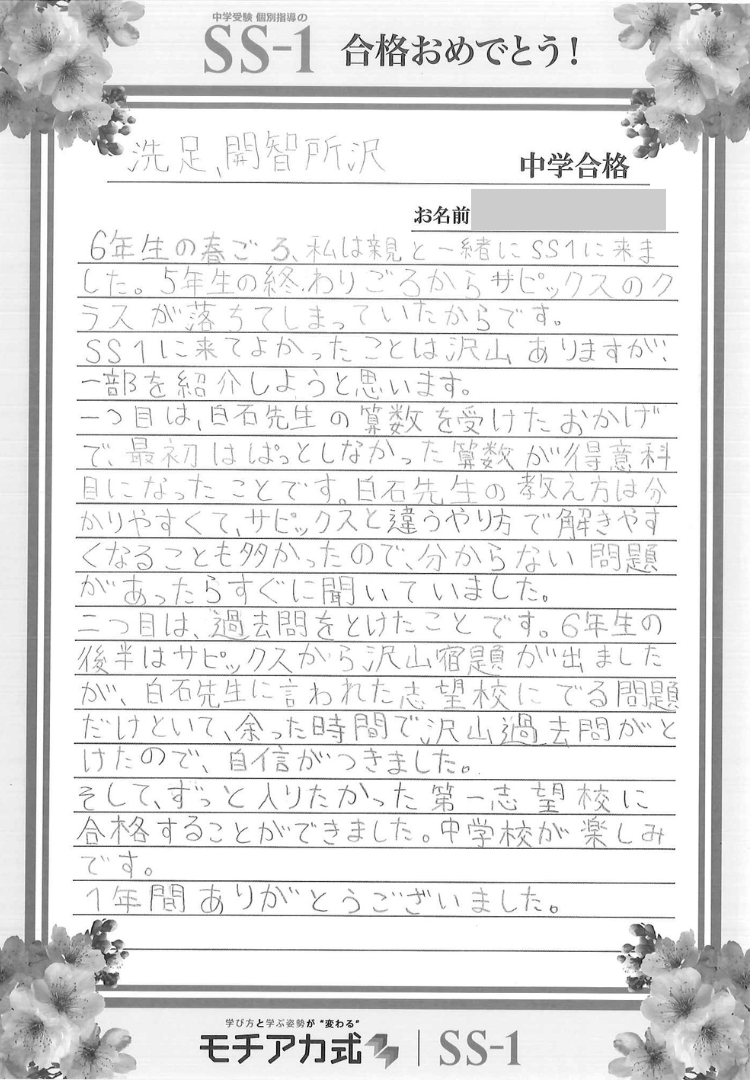 中学受験 個別指導の
SS-1 合格おめでとう！
洗足、開智所沢
中学合格
お名前
6年生の春ごろ、私は親と一緒にSS1に来ま
した。5年生の終わりごろからサピックスのク
ラスが落ちてしまっていたからです。
SS1に来てよかったことは沢山ありますが、
一部を紹介しようと思います。
一つ目は、白石先生の算数を受けたおかげ
で、最初はぱっとしなかった算数が得意科
目になったことです。白石先生の教え方は分
かりやすくて、サピックスと違うやり方で解きやす
くなることも多かったので、分からない問題
があったらすぐに聞いていました。
二つ目は、過去問をとけたことです。6年生の
後半はサピックスから沢山宿題が出ました
が、白石先生に言われた志望校にでる問題
だけといて、余った時間で沢山過去問がと
けたので、自信がつきました。
そして、ずっと入りたかった第一志望校に
合格することができました。中学校が楽しみ
です。
1年間ありがとうございました。
学び方と学ぶ姿勢が"変わる"
モチアカ式 | SS-1